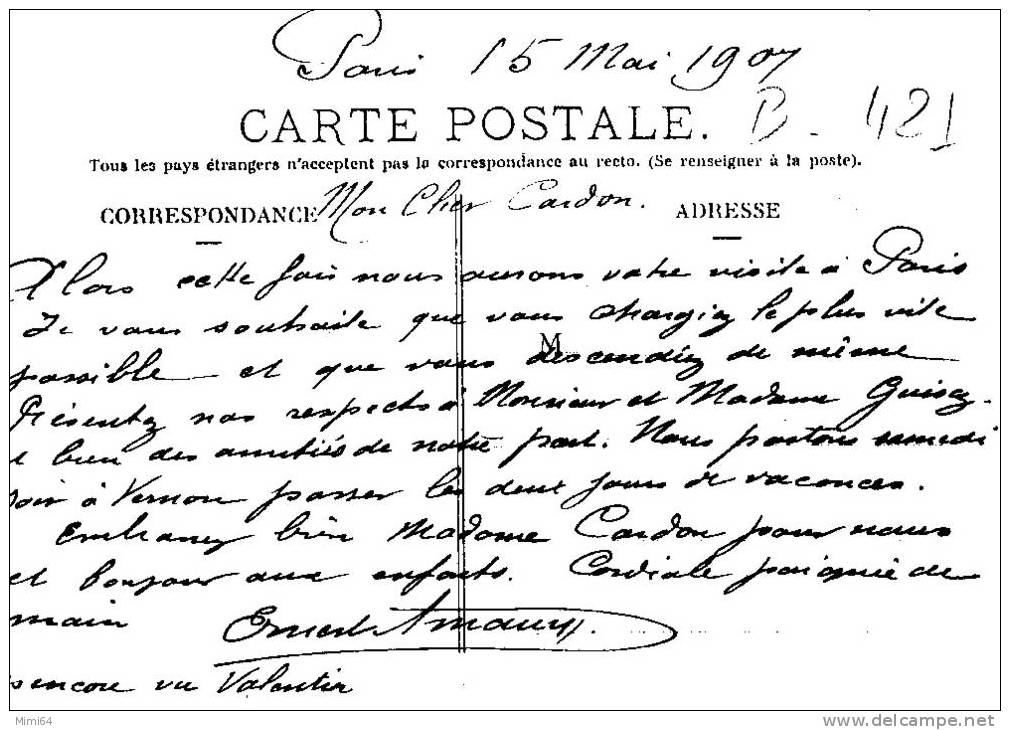 Paris 15 Mai 1907
CARTE POSTALE. B - 421
Tous les pays étrangers n'acceptent pas la correspondance au recto. (Se renseigner à la poste).
CORRESPONDANCE Mon Cher Cardon. ADRESSE
Alors cette fois nous aurons votre visite à Paris
Je vous souhaite que vous chargiez le plus vite
M
possible et que vous descendiez de même
Présentez nos respects à Monsieur et Madame
bien des amitiés de notre part. Nous partons samedi
soir à Vernon passer les deux jours de vacances.
Embrassez bien Madame Cardon pour nous
et bonjour aux enfants. Cordiale poignée de
main Ernest Amaury.
encore vu Valentin
Mimi64
www.delcampe.net